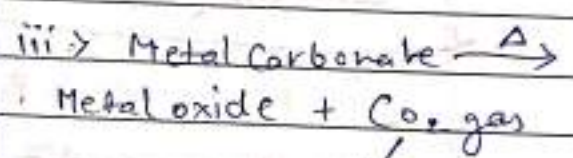 iii> Metal Carbonate Δ→
Metal oxide + Co₂ gas